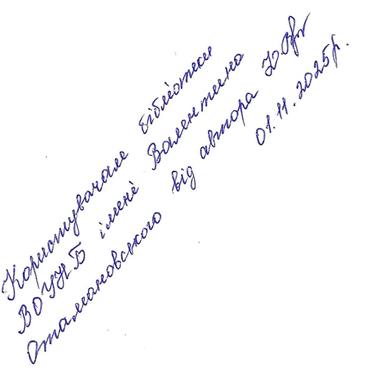 Користувачам бібліотеки
ВОУНБ імені Валентина
Отамановського від автора
01.11.2025р.